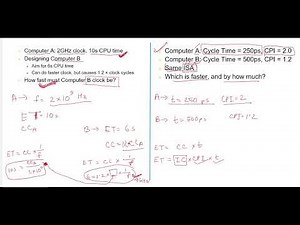 Computer A: 2GHz clock, 10s CPU time
Designing Computer B
Aim for 6s CPU time
Can do faster clock, but causes 1.2 × clock cycles
How fast must Computer B clock be?
A → f = 2×10⁹ Hz
ET = 10s
CC_A
B → ET = 6s
ET = CC × 1/f
ET = CC × 1/f
Computer A: Cycle Time = 250ps, CPI = 2.0
Computer B: Cycle Time = 500ps, CPI = 1.2
Same ISA
Which is faster, and by how much?
A → t = 250 ps CPI = 2
B → t = 500ps CPI = 1.2
ET = CC × t
ET = IC × CPI × t